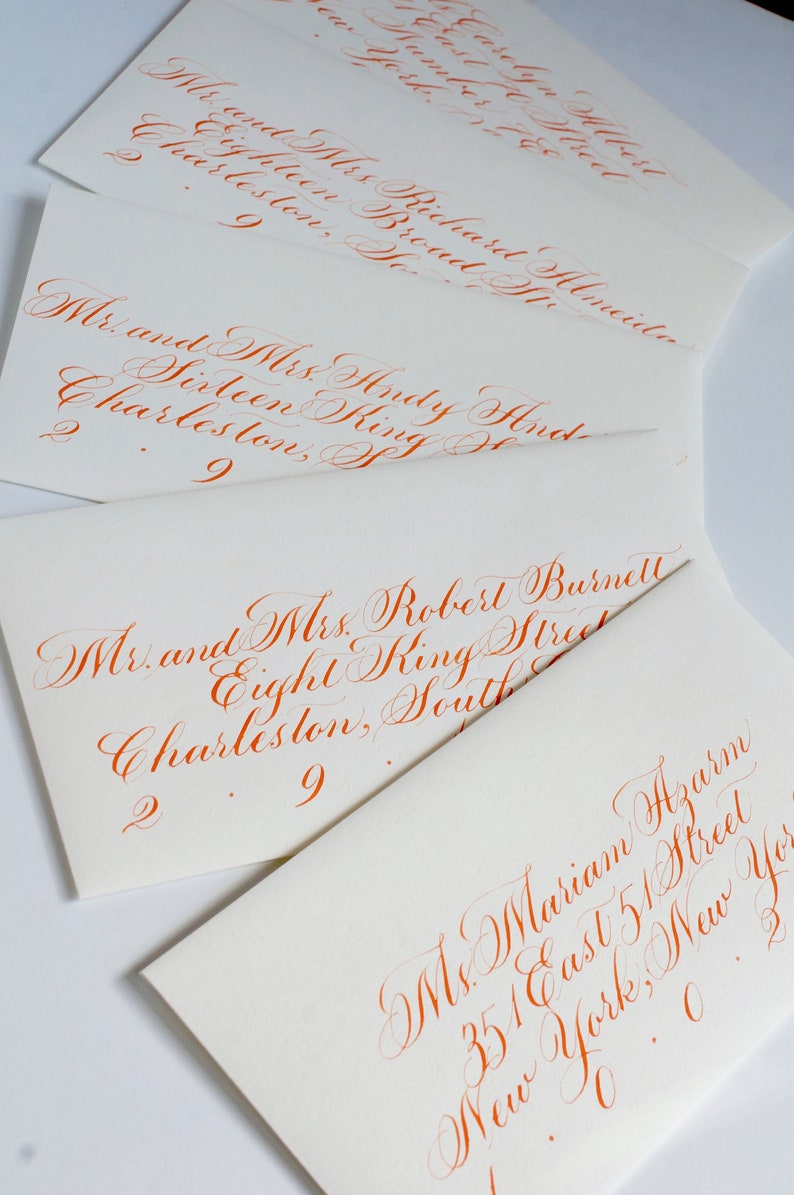 Carolyn Albert
East 70 Street
Number
York,
Mr. and Mrs. Richard Almeida
Eighteen Broad
Charleston,
2 . 9
Mr. and Mrs. Andy
Sixteen King
Charleston,
2 . 9
Mr. and Mrs. Robert Burnett
Eight King Street
Charleston, South
2 . 9 .
Ms. Mariam Azarm
351 East 51 Street
New York, New York
1 . 0 . 0 . 2